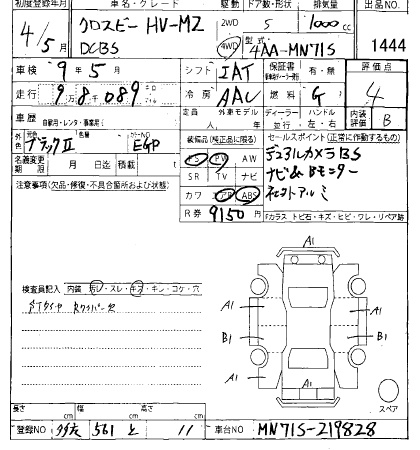 初度登録年月 車名・グレード 駆動 ドア数・形状 排気量 出品NO
4/5月 クロスビー HV-MZ DCBS 2WD 4WD 5 1000cc 1444
型式 4AA-MN71S
車検 9年5月 シフト IAT 保証書 有・無 評価点 4
走行 9万8千089 冷房 AAC 燃料 G 内装評価 B
定員 人 外車モデル 年 ディーラー 並行 ハンドル 左・右
車歴 自家用・レンタ・事業用
外色 ブラックⅡ 色替 カラーNO EGP
装備品(純正品に限る) セールスポイント(正常に作動するもの)
PS PW AW デュアルカメラBS
名義変更期限 月 日迄 積載 t
SR TV ナビ ナビ&Bモニター
注意事項(欠品・修復・不具合箇所および状態)
カワ エアB ABS 社外アルミ
R券 9150円 Fガラス トビ石・キズ・ヒビ・ワレ・リペア跡
A1
検査員記入 内装 汚レ・スレ・キズ・キレ・コゲ・穴
STタイヤ
A1 A1
B1 B1
A1 A1
A1
スペア
長さ cm 幅 cm 高さ cm
登録NO 561 と 11 車台NO MN71S-219828